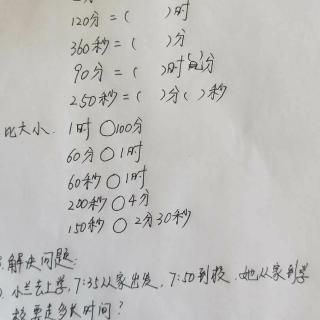 120分=( )时
360秒=( )分
90分=( )时( )分
250秒=( )分( )秒
比大小.
1时○100分
60分○1时
60秒○1时
200秒○4分
150秒○2分30秒
解决问题:
小兰去上学,7:35从家出发,7:50到校.她从家到学
校要走多长时间?